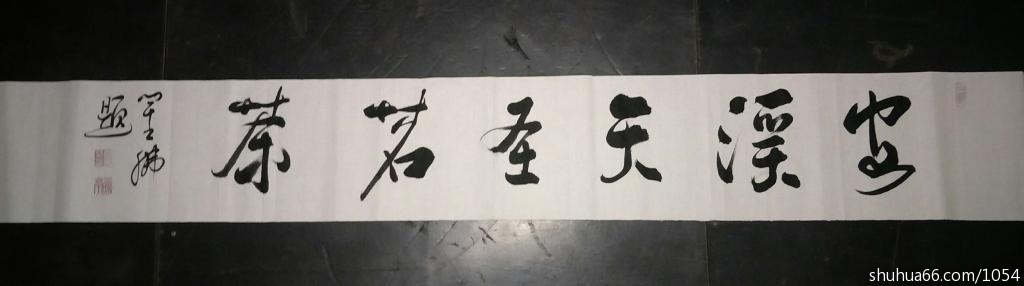 安溪天圣茗茶
题
shuhua66.com/1054